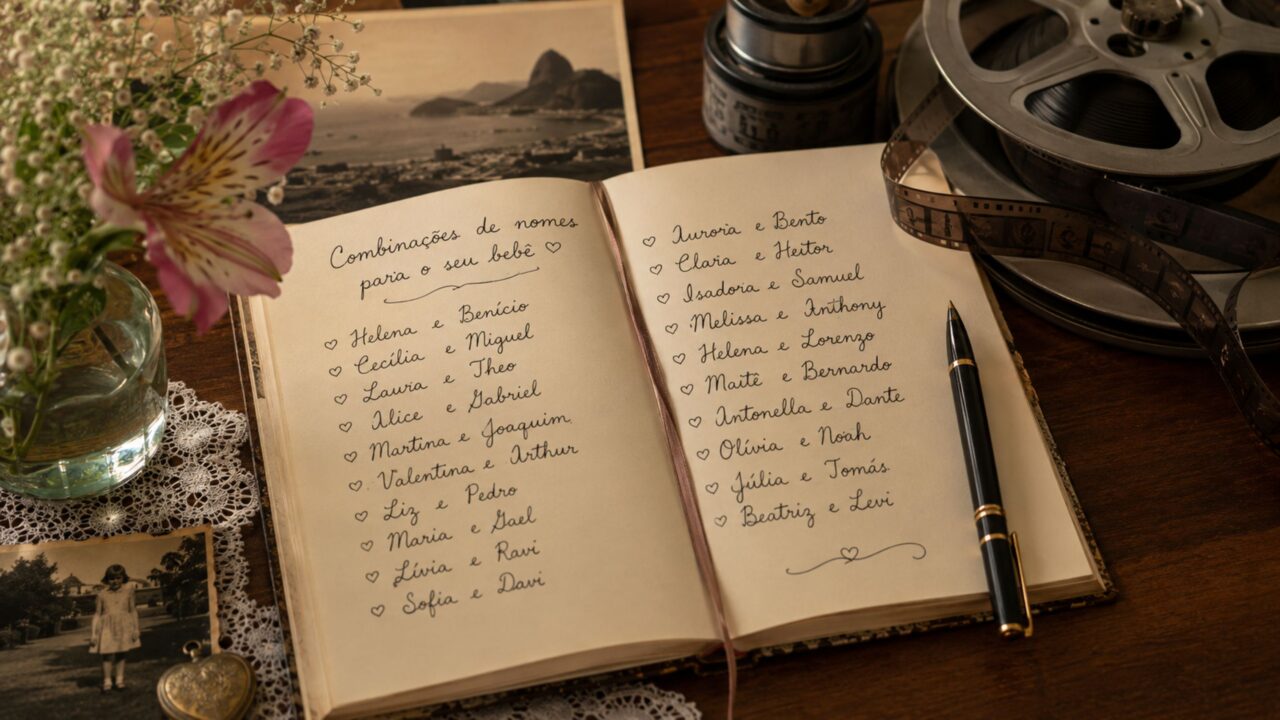 Combinações de nomes
para o seu bebê ♡
♡ Helena e Benício
♡ Cecília e Miguel
♡ Laura e Theo
♡ Alice e Gabriel
♡ Martina e Joaquim
♡ Valentina e Arthur
♡ Liz e Pedro
♡ Maria e Gael
♡ Lívia e Ravi
♡ Sofia e Davi
♡ Aurora e Bento
♡ Clara e Heitor
♡ Isadora e Samuel
♡ Melissa e Anthony
♡ Helena e Lorenzo
♡ Maitê e Bernardo
♡ Antonella e Dante
♡ Olívia e Noah
♡ Júlia e Tomás
♡ Beatriz e Levi